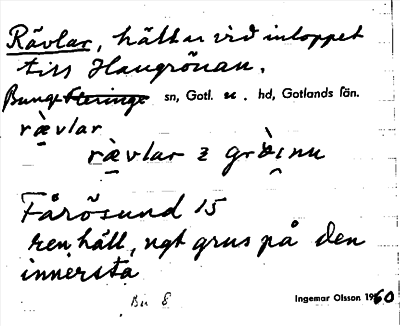 Rävlar, hällar vid inloppet
till Haugrönan.
Bunge Fleringe sn, Gotl. n . hd, Gotlands län.
rà̱vlar
rà̱vlar z grò̱ı̯nu
Fårösund 15
ren häll, ngt grus på den
innersta
Bu 8
Ingemar Olsson 1960